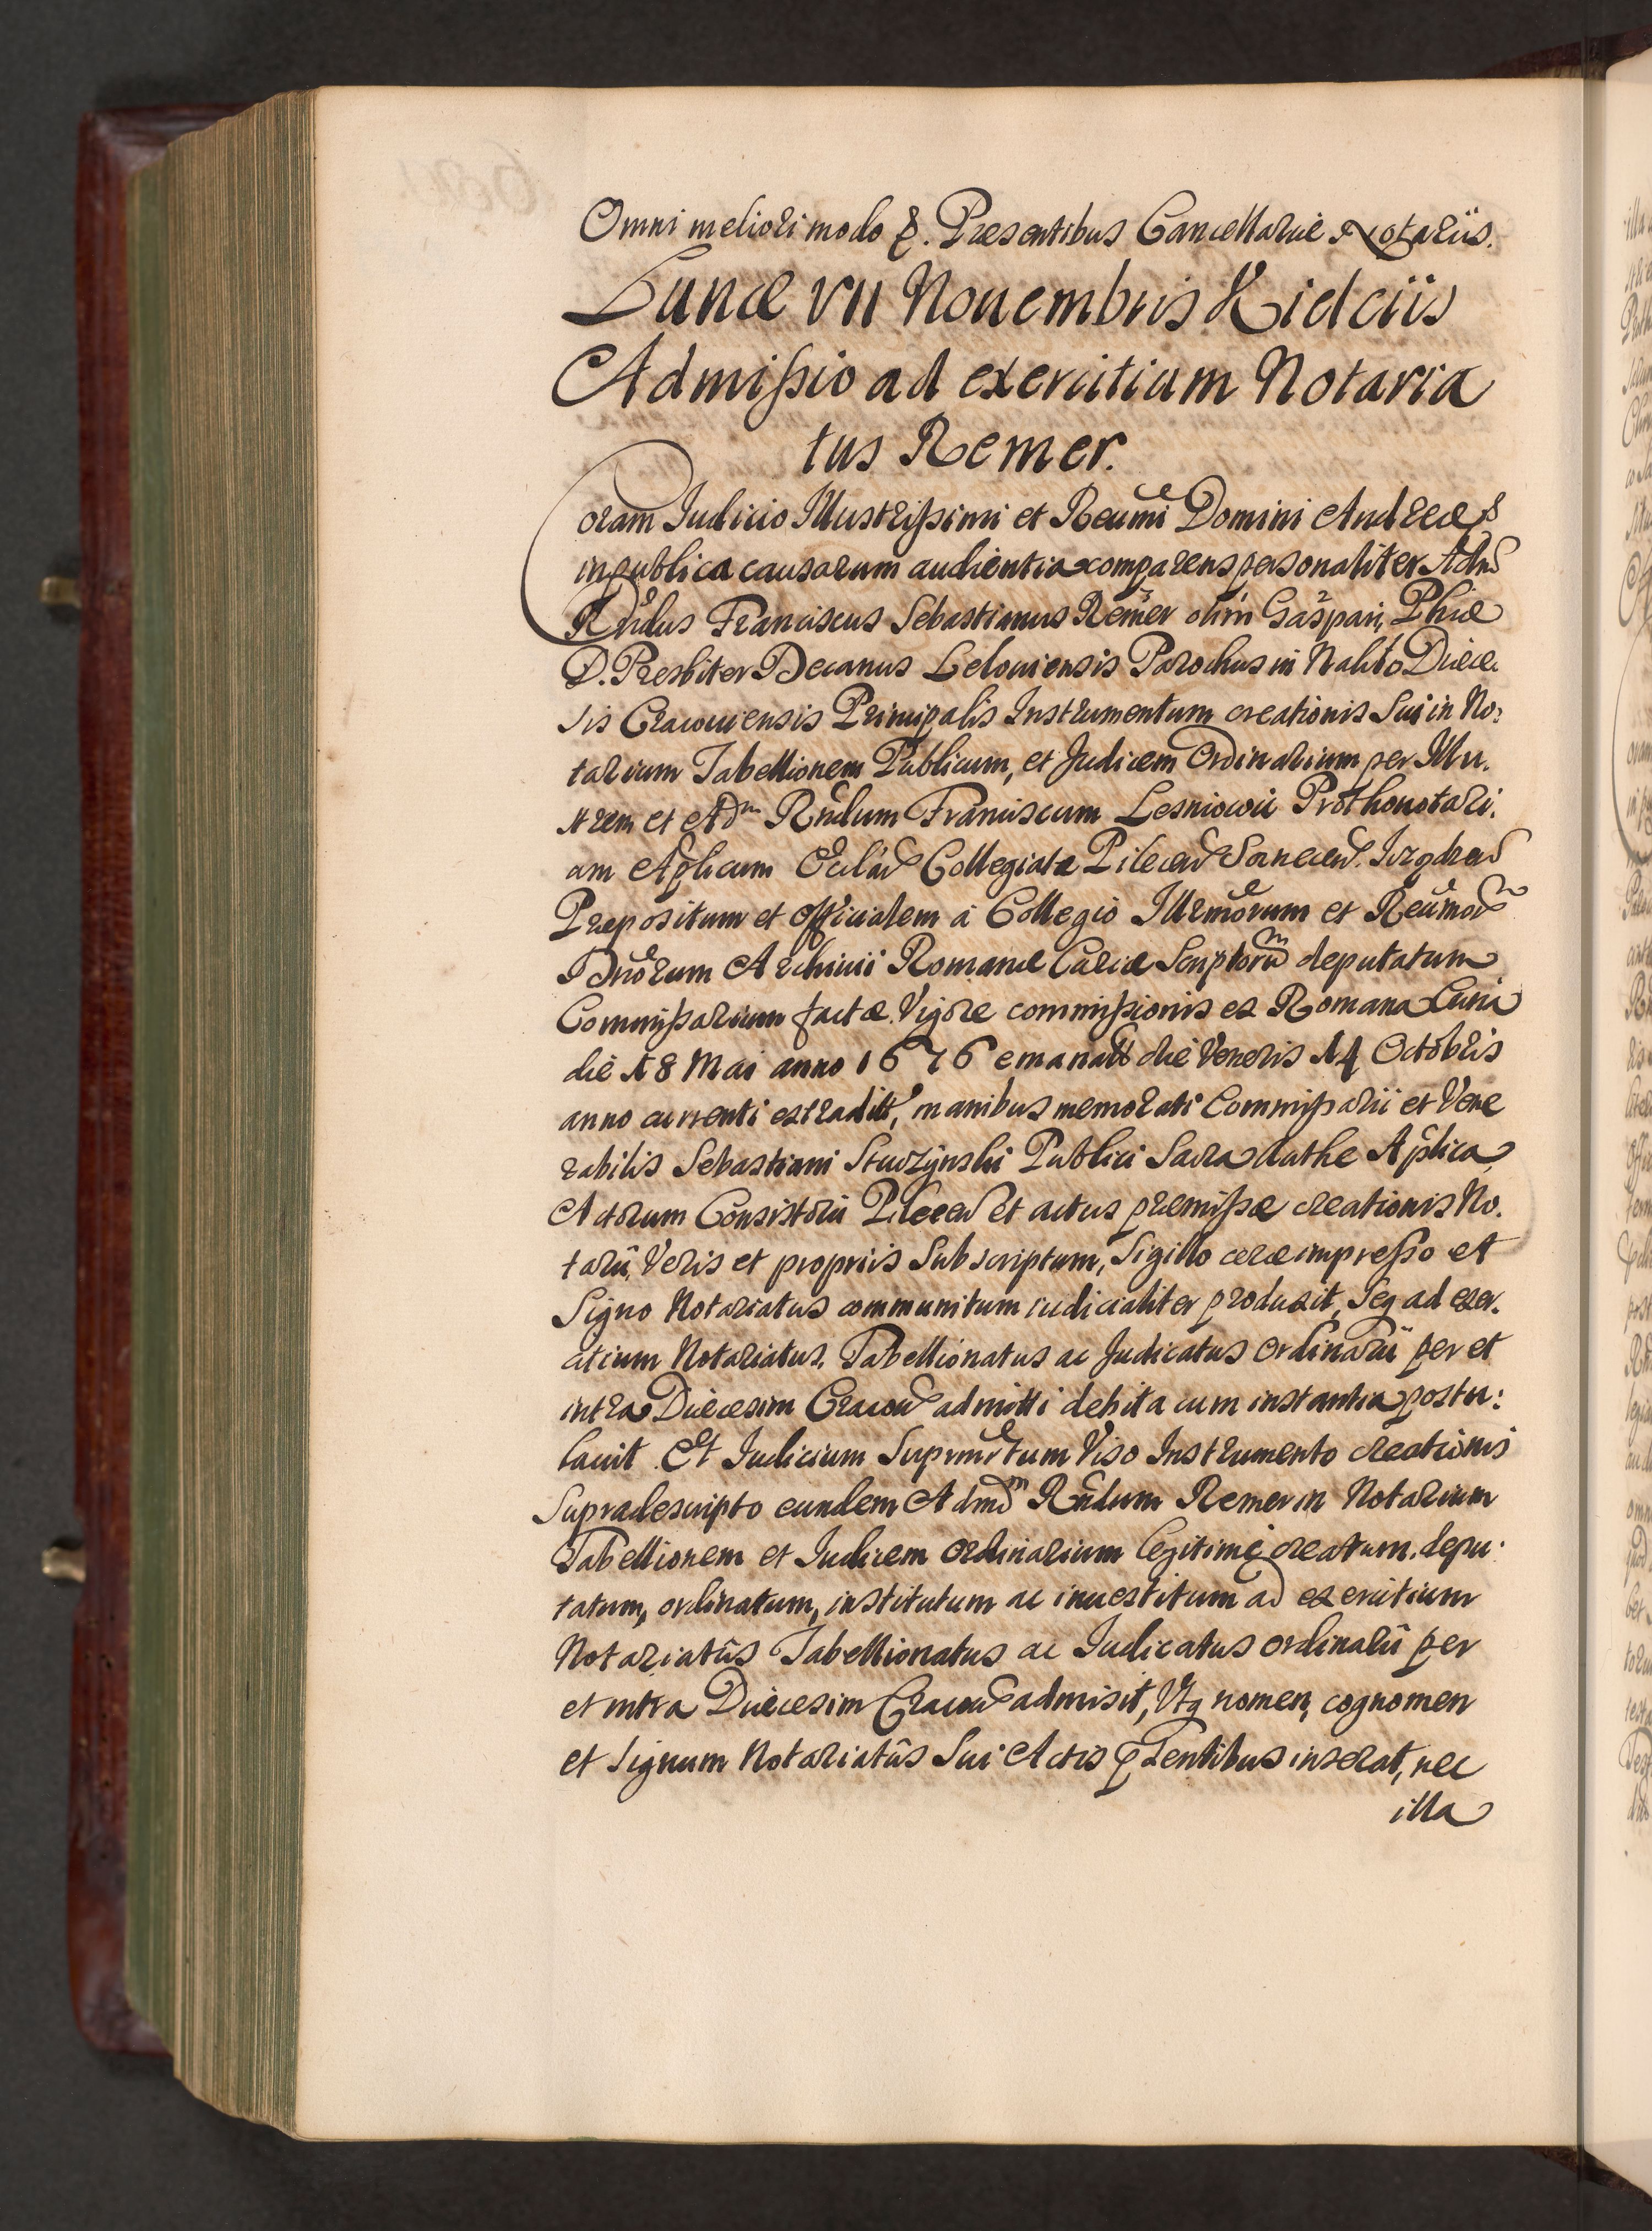 Omni meliori modo &. Præsentibus Cancellariæ Notariis.
Lunæ VII Nouembris Kielciis
Admissio ad exercitium Notaria
tus Remer.
Coram Iudicio Illustrissimi et Reumi Domini Andreæ &
in publica causarum audientia comparens personaliter Adm
Rndus Franciscus Sebastianus Remer olim Gaspari, Phiæ
D. Presbiter Decanus Leloviensis Parochus in Nakło Diæce
sis Cracouiensis Principalis Instrumentum creationis Sui in No:
tarium Tabellionem Publicum, et Judicem Ordinarium per Illu.
strem et Adm Rndum Franciscum Lesniowic Prothonotari.
um Aplicum Eccliar Collegiatæ Pilecen
Præpositum et Officialem à Collegio Illrmorum et Reumor
Dnorum Archiuii Romanæ Curiæ Scriptorum deputatum
Commissarium factæ. Vigore commissionis ex Romana Curia
die 18 Mai anno 1676 emanatt die Veneris 14 Octobris
anno currenti extraditt, manibus memorati Commissarii et Vene
rabilis Sebastiani Studzynski Publici Sacra Authe Aplica
Actorum Consistorii Pilecen et actus præmissæ creationis No.
tarii, Veris et propriis Subscriptum, Sigillo ceræ impresso et
Signo Notariatus communitum iudicialiter produxit, Seq ad exer.
citium Notariatus, Tabellionatus ac Judicatus Ordinarii per et
intra Diæcesim Cracou admitti debita cum instantia postu:
lauit. Et Iudicium Suprmttum Viso Instrumento creationis
Supradescripto eundem Admd Rndum Remer in Notarium
Tabellionem et Iudicem Ordinarium legitimè creatum, depu:
tatum, ordinatum, institutum ac inuestitum ad exercitium
Notariatûs Tabellionatus ac Iudicatus ordinarii per
et intra Diæcesim Cracou admisit, Vtq nomen, cognomen
et Signum Notariatûs Sui Actis pntibus inserat, nec
illa